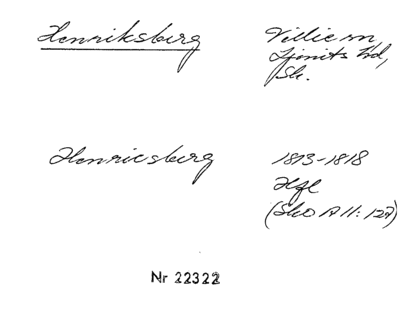 Henriksberg
Villie sn,
Ljunits hd,
Sk.
Henricsberg
1813-1818
Hfl
(SkO A II: 127)
Nr 22322